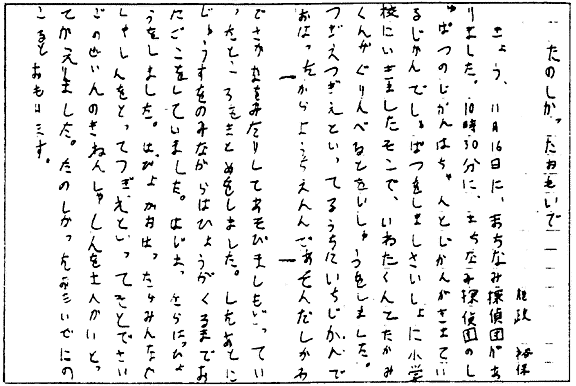 たのしかったおもいで
きょう、11月16日に、まちなみ探偵団があ
りました。10時30分に、まちなみ探偵団のし
ゅぱつのじかんはちゃんとじかんがきまてい
るじかんでしゅぱつをしましさいしょに小学
校にいきましたモンで、いわたくんとたかみ
くんがぐりんべるとをいしゅつをしました。
つぎえつぎえといってるうちにいちじかんで
おはったからようちえんんであそんだしかわ
でさかなをみたりしてあそびましもどってい
ったところをまとめをしました。したあとに
じゅうすをのみながらはぴょうがくるまでお
たごこをしていました。はじまったらはっぴょ
うをしました。はぴょがおはったらみんなで
しゃしんをとってつぎえといってきとでさい
ごのぜいんのきねんしゃしんを土人がいとっ
てかえりました。たのしかったおもいでにの
こるとおもいます。